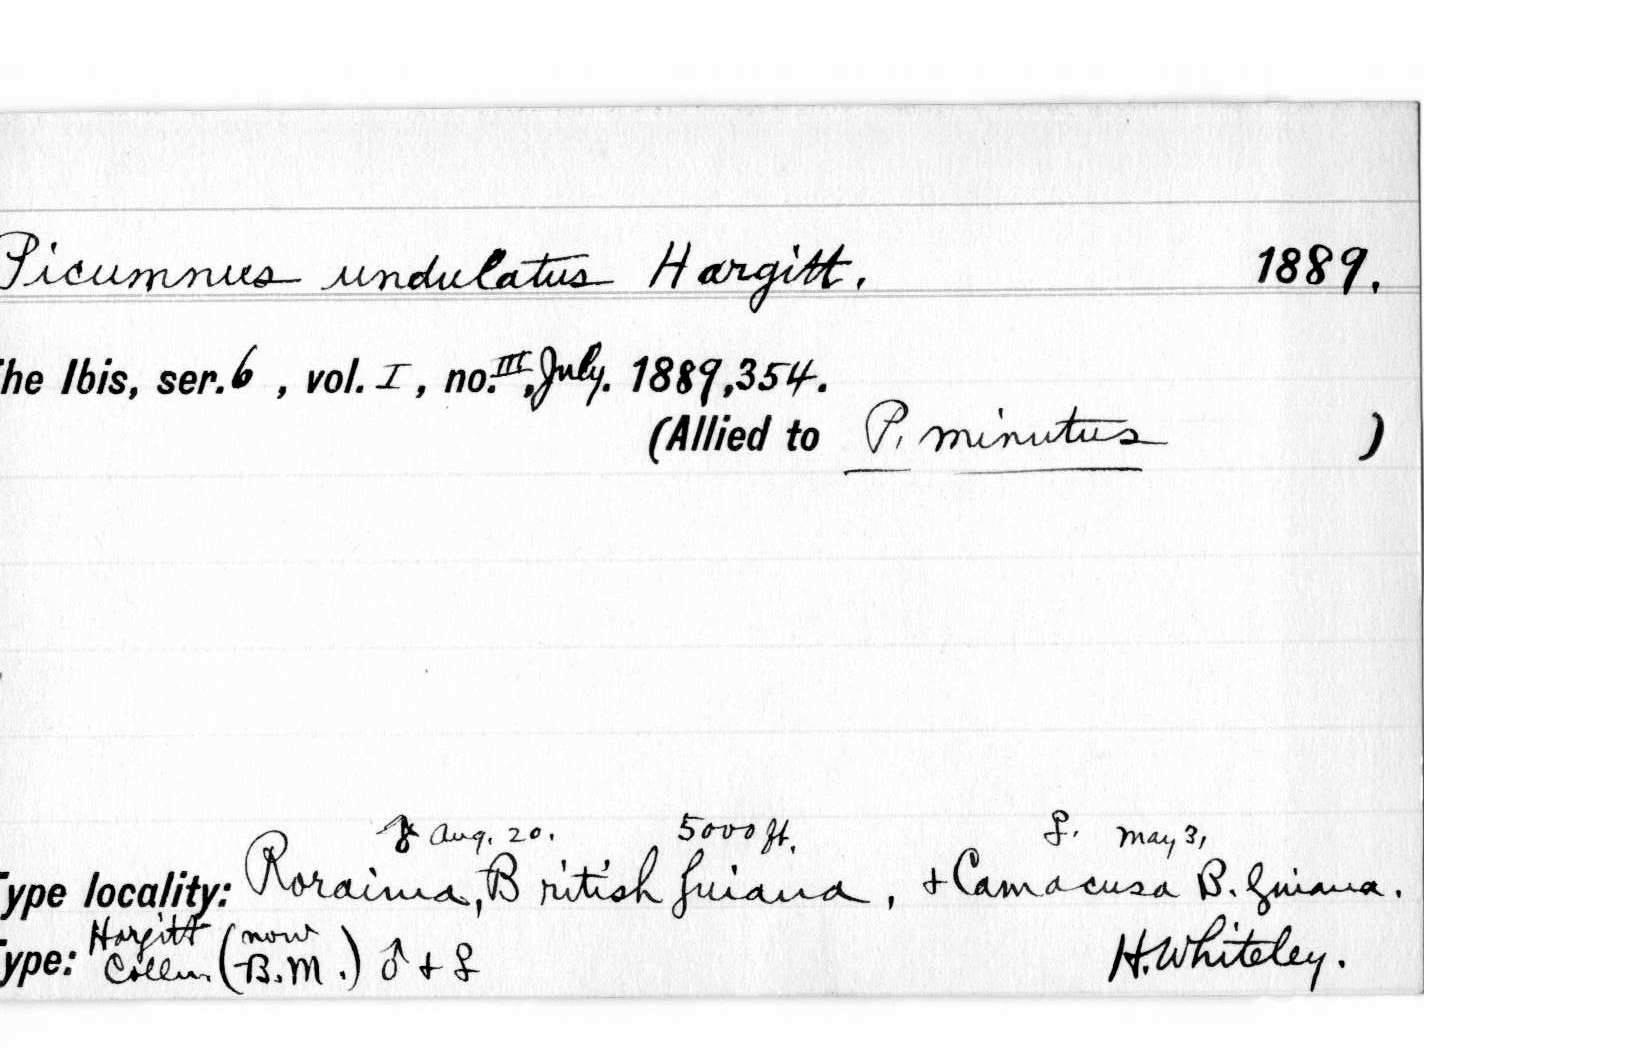 Picumnus undulatus Hargitt. 1889.
The Ibis, ser. 6 , vol. I , no. III, July. 1889, 354.
(Allied to P. minutus )
♂ Aug. 20. 5000 ft. ♀. May 31
Type locality: Roraima, British Guiana, + Camacusa B. Guiana.
Type: Hargitt Colln. (now B.M.) ♂ + ♀ H. Whiteley.